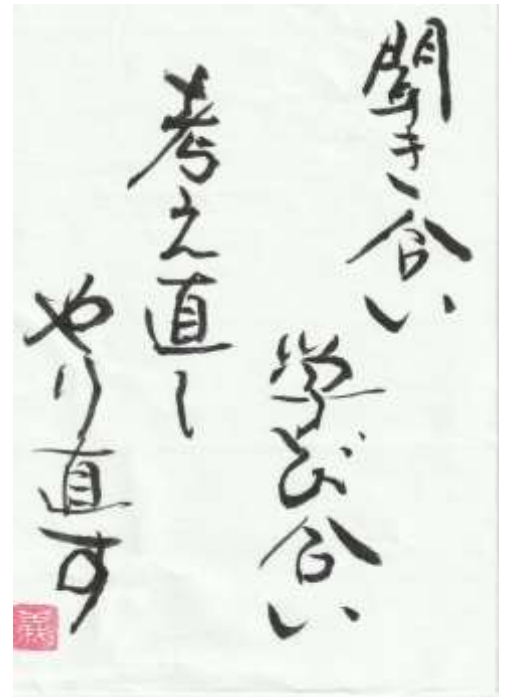 聞き合い
学び合い
考え直し
やり直す
義